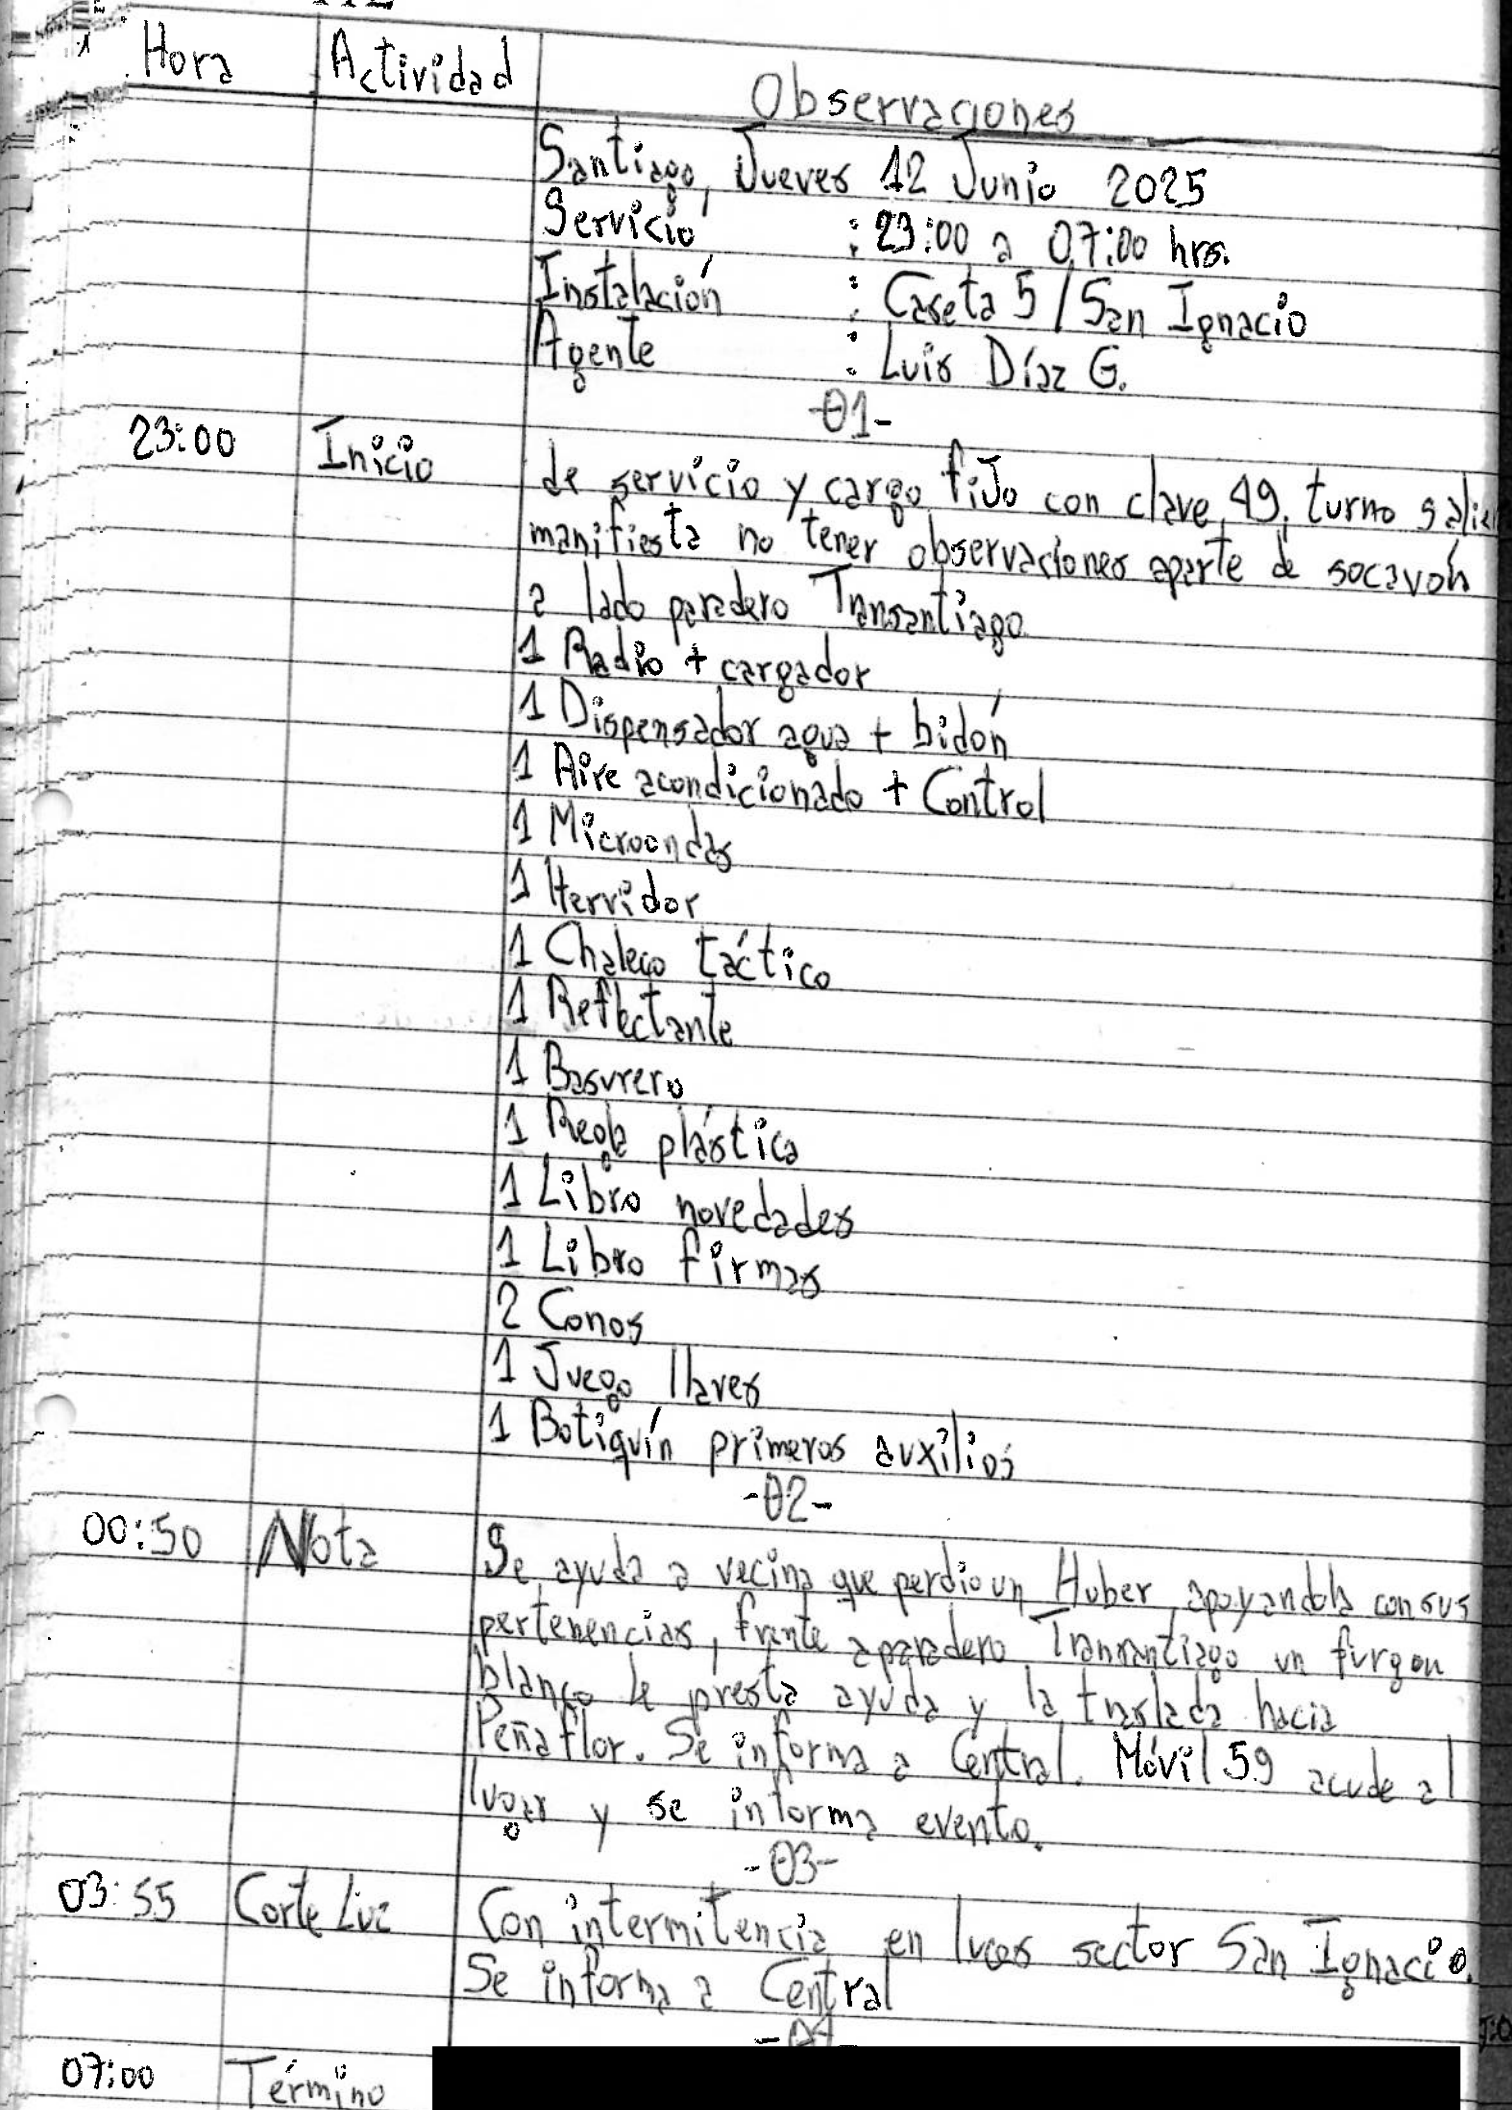 Hora Actividad Observaciones
Santiago, Jueves 12 Junio 2025
Servicio : 23:00 a 07:00 hrs.
Instalación : Caseta 5 / San Ignacio
Agente : Luis Díaz G.
-01-
23:00 Inicio de servicio y cargo fiJo con clave 49, turno salie
manifiesta no tener observaciones aparte de socavón
a lado paradero Transantiago
1 Radio + cargador
1 Dispensador agua + bidón
1 Aire acondicionado + Control
1 Microondas
1 Hervidor
1 Chaleco táctico
1 Reflectante
1 Basurero
1 Regla plástica
1 Libro novedades
1 Libro firmas
2 Conos
1 Juego llaves
1 Botiquín primeros auxilios
-02-
00:50 Nota Se ayuda a vecina que perdio un Huber, apoyandola con sus
pertenencias, frente a paradero Transantiago un furgon
blanco le presta ayuda y la traslada hacia
Peñaflor. Se informa a Central. Móvil 59 acude al
lugar y se informa evento.
-03-
03:55 Corte Luz Con intermitencia en luces sector San Ignacio.
Se informa a Central
-04-
07:00 Término